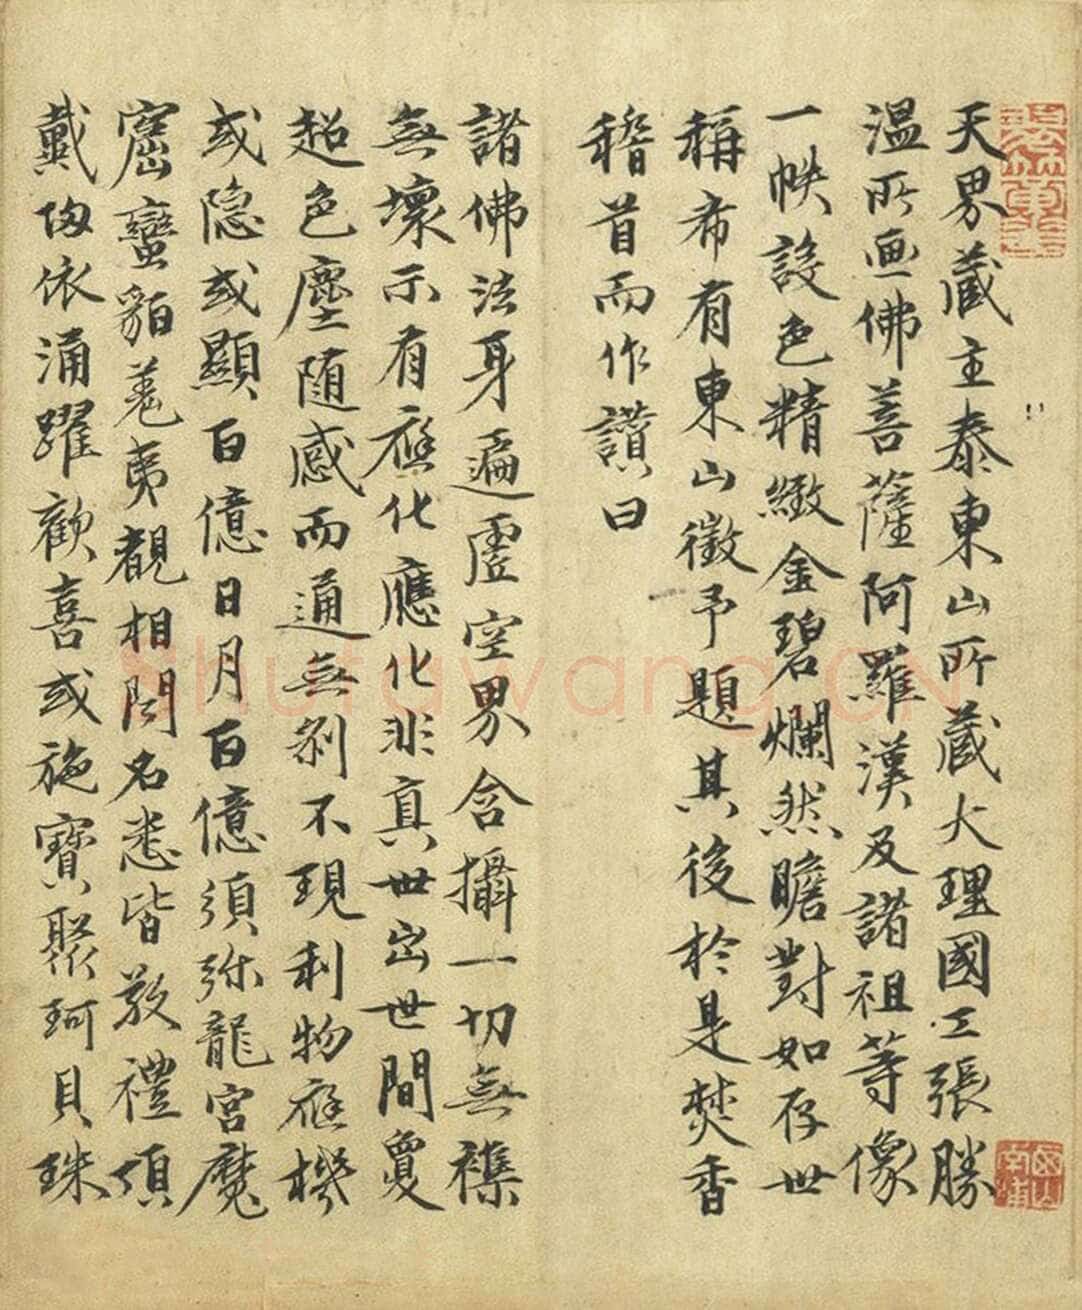 天界蔵主泰東山所蔵大理國工張勝
温所画佛菩薩阿羅漢及諸祖等像
一帙設色精緻金碧爛然瞻對如存世
稱希有東山徵予題其後於是焚香
稽首而作讃曰
諸佛法身遍虛空界含攝一切無襍
無壞示有應化應化非真世出世間夐
超色塵随感而通無刹不現利物應機
或隐或顯百億日月百億須弥龍宮魔
窟蠻貊羌夷覩相聞名悉皆敬禮頂
戴皈依涌躍歡喜或施寶聚珂貝珠
Shufawang.CN